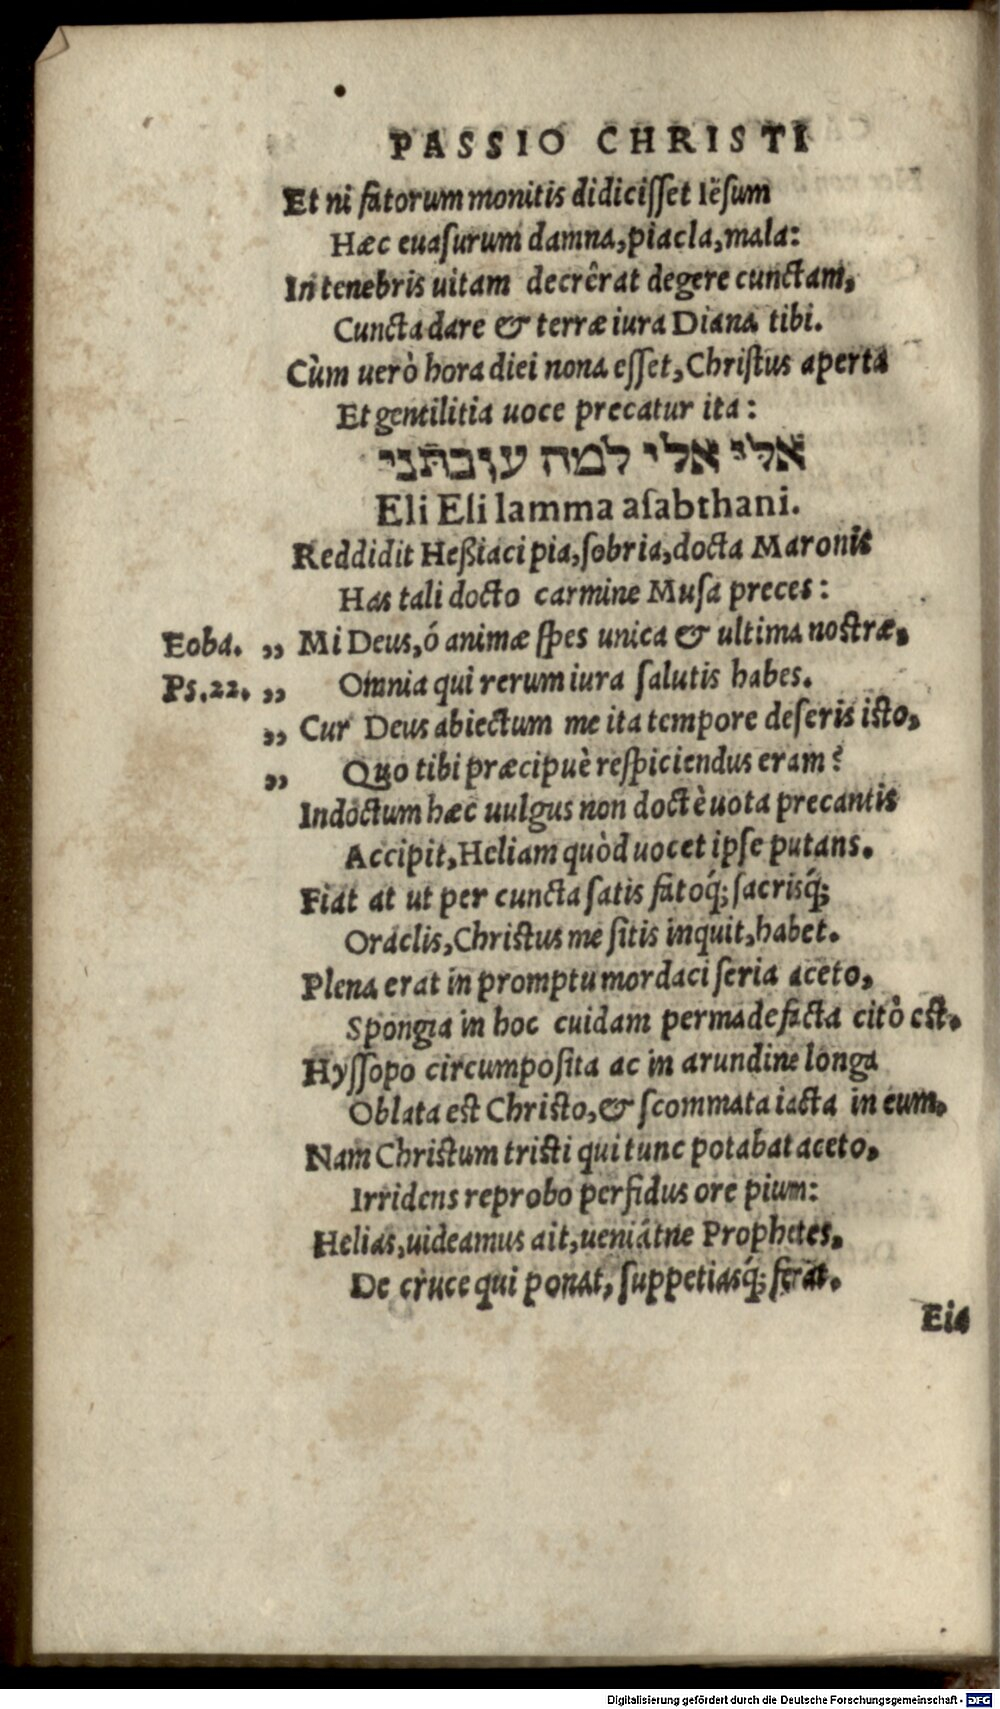 PASSIO CHRISTI
Et ni fatorum monitis didicisset Iësum
Hæc euasurum damna, piacla, mala:
In tenebris uitam decrêrat degere cunctam,
Cuncta dare & terræ iura Diana tibi.
Cùm uerò hora diei nona esset, Christus aperta
Et gentilitia uoce precatur ita:
אלי אלי למה עזבתני
Eli Eli lamma asabthani.
Reddidit Heßiaci pia, sobria, docta Maronis
Has tali docto carmine Musa preces:
Eoba. ,, Mi Deus, ó animæ spes unica & ultima nostræ,
Ps.22. ,, Omnia qui rerum iura salutis habes.
,, Cur Deus abiectum me ita tempore deseris isto,
,, Quo tibi præcipuè respiciendus eram?
Indoctum hæc uulgus non doctè uota precantis
Accipit, Heliam quòd uocet ipse putans.
Fiat at ut per cuncta satis fatoq́; sacrisq́;
Oraclis, Christus me sitis inquit, habet.
Plena erat in promptu mordaci seria aceto,
Spongia in hoc cuidam permadefacta citò est.
Hyssopo circumposita ac in arundine longa
Oblata est Christo, & scommata iacta in eum.
Nam Christum tristi qui tunc potabat aceto,
Irridens reprobo perfidus ore pium:
Helias, uideamus ait, ueniátne Prophetes,
De cruce qui ponat, suppetiasq́; ferat.
Eia
Digitalisierung gefördert durch die Deutsche Forschungsgemeinschaft - DFG